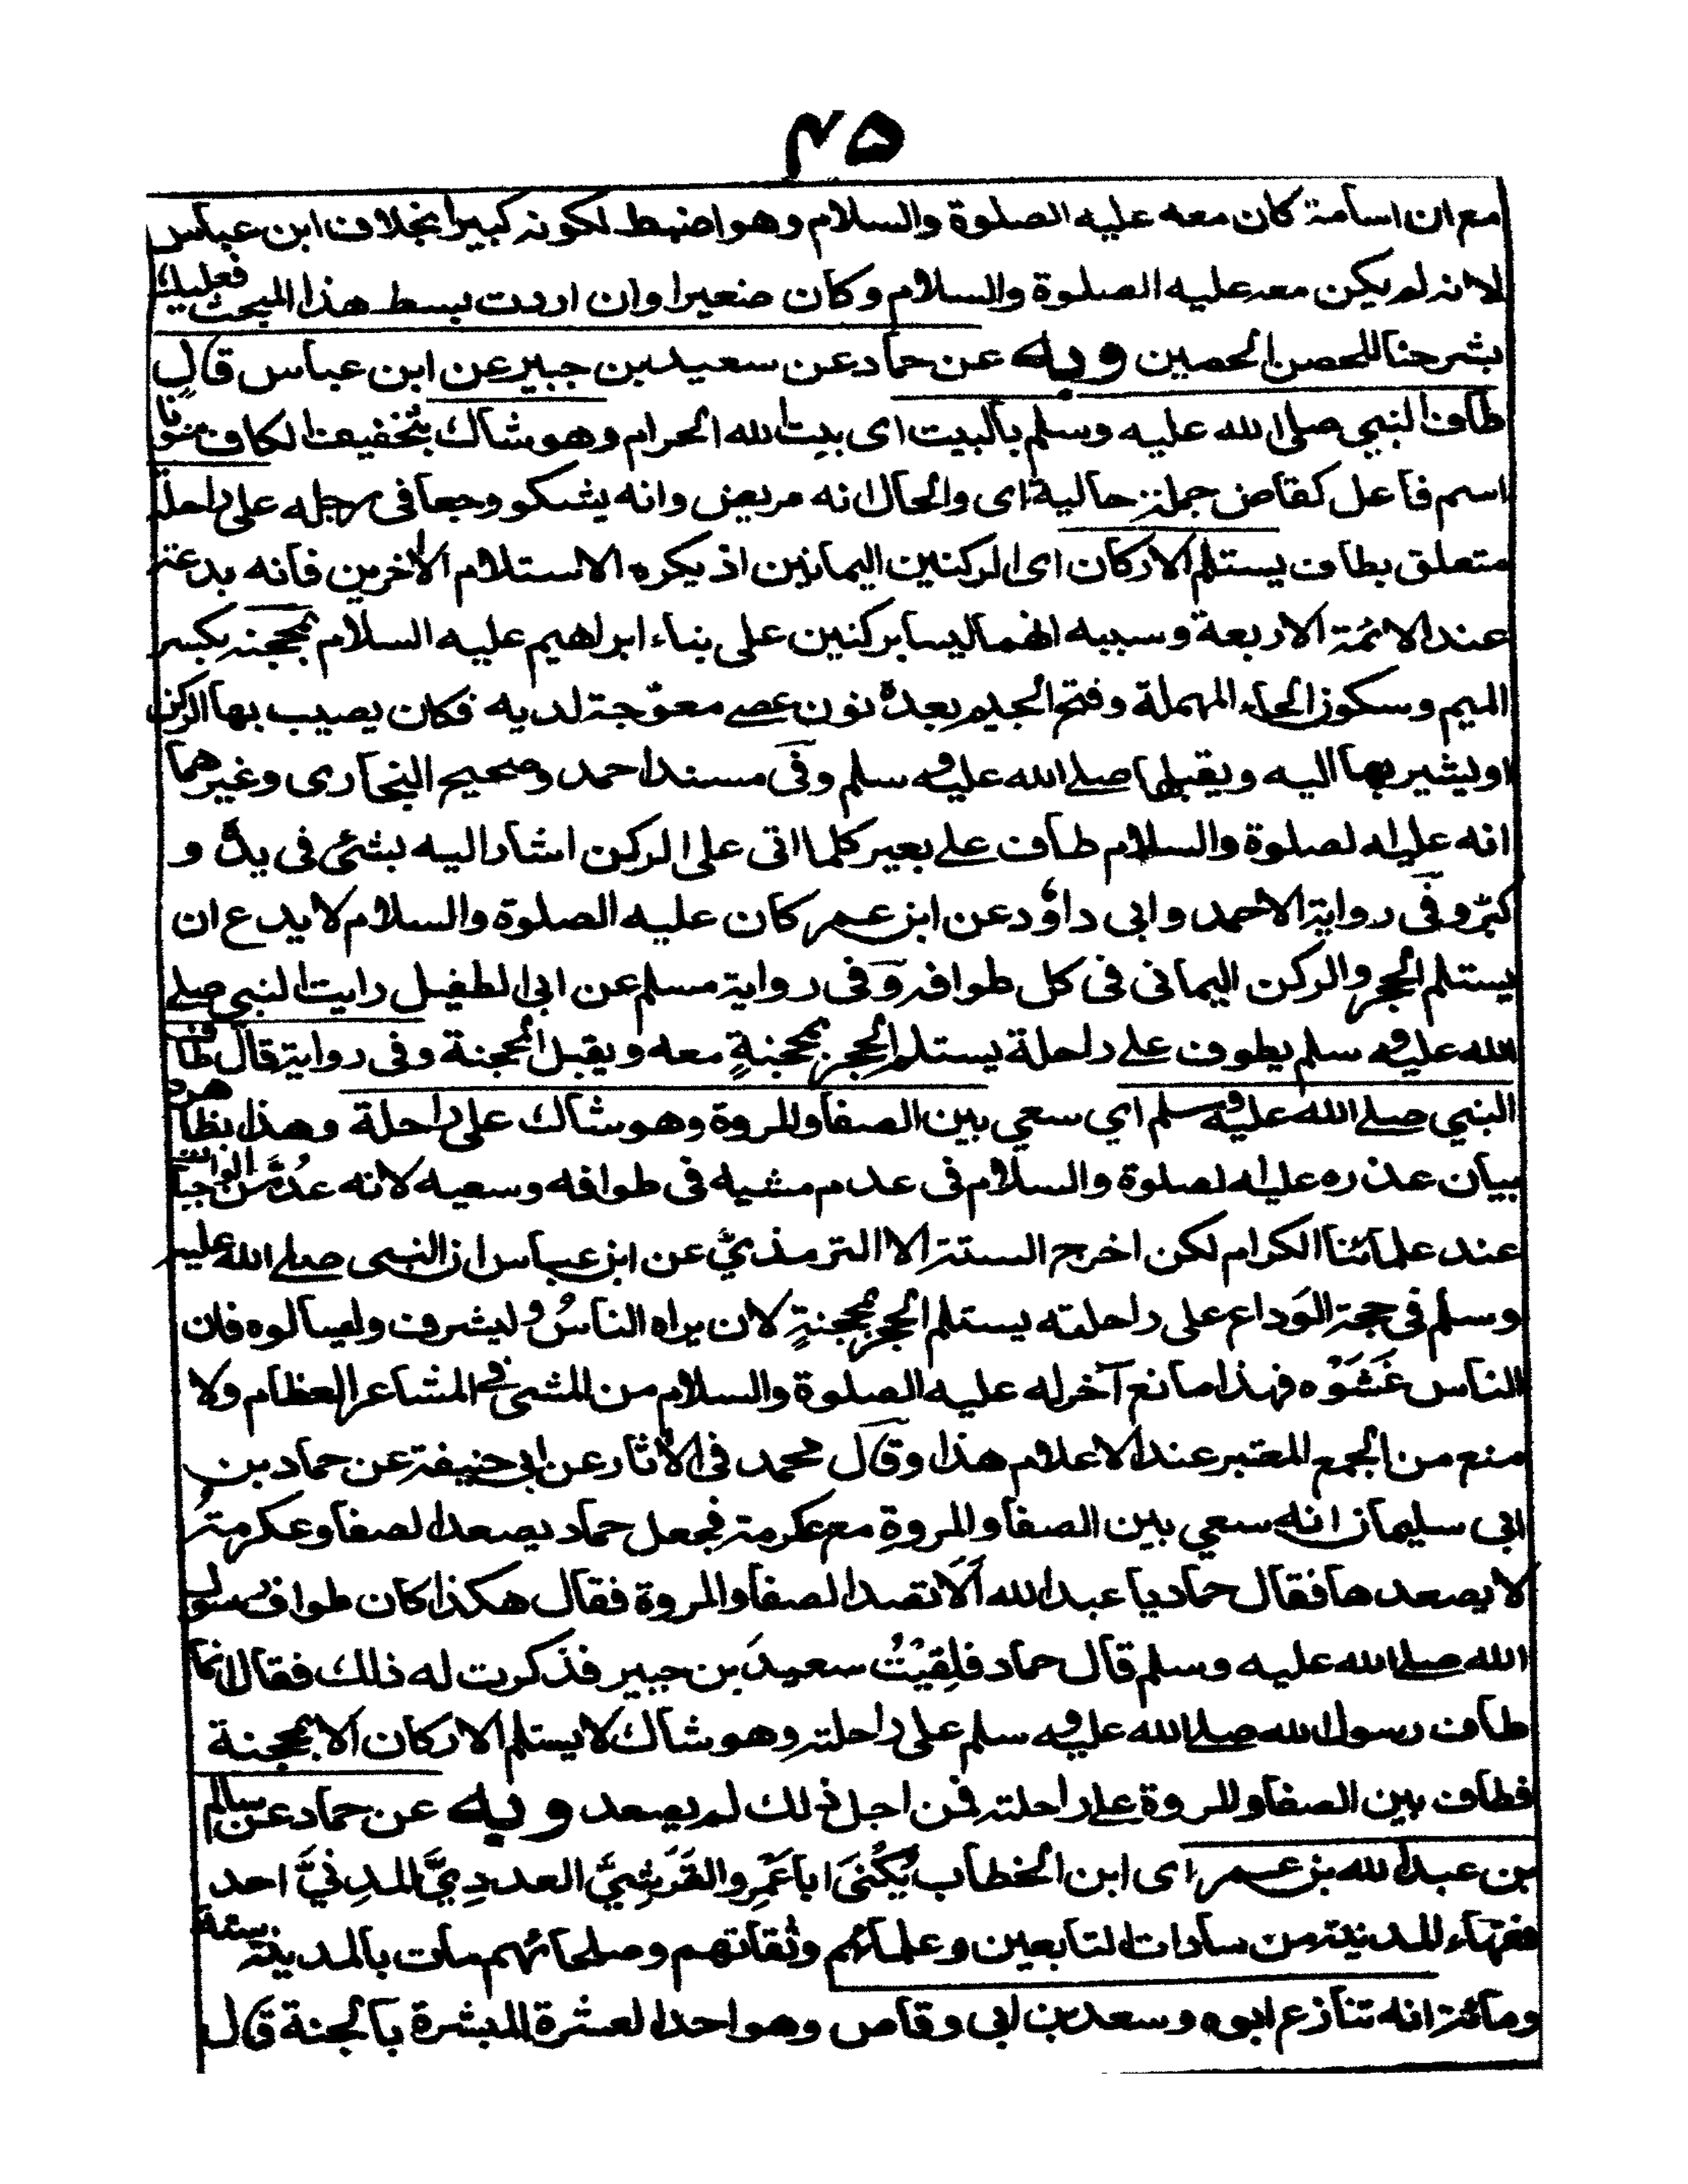 ۴۵
مع ان اسامة كان معه عليه الصلوة والسلام وهو اضبط لكونه كبيرا بخلاف ابن عباس
لانه لم يكن معه عليه الصلوة والسلام وكان صغيرا وان اردت بسط هذا المبحث فعليك
بشرحنا للحصن الحصين وبه عن حماد عن سعيد بن جبير عن ابن عباس قال
طاف النبي صلى الله عليه وسلم بالبيت اى بيت الله الحرام وهو شاك بتخفيف الكاف منونا
اسم فاعل كقاض جملة حالية اى والحال انه مريض وانه يشكو وجعا فى رجله على راحلة
متعلق بطاف يستلم الاركان اى الركنين اليمانين اذ يكره الاستلام الاخرين فانه بدعة
عند الائمة الاربعة وسببه انهما ليسا بركنين على بناء ابراهيم عليه السلام بمحجنه بكسر
الميم وسكون الحاء المهملة وفتح الجيم بعده نون عصے معوّجة لديه فكان يصيب بها الركن
او ليشير بها اليه ويقبلها صلے الله عليه وسلم وفى مسند احمد وصحيح البخارى وغيرهما
انه عليه الصلوة والسلام طاف علے بعير كلما اتى على الركن اشار اليه بشئ فى يده و
كبر وفى رواية الاحمد وابى داؤد عن ابن عمر كان عليه الصلوة والسلام لا يدع ان
يستلم الحجر والركن اليمانى فى كل طوافه وفى رواية مسلم عن ابى الطفيل رايت النبى صلے
الله عليه وسلم يطوف علے راحلة يستلم الحجر بمحجنةٍ معه ويقبل المحجنة وفى رواية قال طاف
النبي صلے الله عليه وسلم اي سعي بين الصفا والمروة وهو شاك على راحلة وهذا بظاهره
بيان عذره عليه الصلوة والسلام فى عدم مشيه فى طوافه وسعيه لانه عُدّ من الواجبات
عند علمائنا الكرام لكن اخرج الستة الا الترمذيّ عن ابن عباس ان النبى صلے الله عليه
وسلم فى حجة الوَداع على راحلته يستلم الحجر بمحجنةٍ لان يراه الناسُ وليشرف وليسالوه فان
الناس غَشَوْه فهذا مانع آخر له عليه الصلوة والسلام من المشى فى المشاعر العظام ولا
منع من الجمع المعتبر عند الاعلام هذا وقال محمد فى الأثار عن ابى حنيفة عن حماد بن
ابى سليمان انه سعي بين الصفا والمروةِ مع عكرمة فجعل حماد يصعد الصفا وعكرمةُ
لا يصعدها فقال حماد يا عبد الله اَلَا تصعد الصفا والمروة فقال هكذا كان طواف رسول
الله صلے الله عليه وسلم قال حماد فلِقيْتُ سعيدَ بن جبير فذكرت له ذلك فقال انما
طاف رسول الله صلے الله عليه وسلم على راحلته وهو شاك لا يستلم الاركان الا بمحجنة
فطاف بين الصفا والمروة علے راحلته فمن اجل ذلك لم يصعد وبه عن حماد عن سالم
بن عبد الله بن عمر اى ابن الخطاب يُكْنىَ ابا عَمْرٍو القَرَشِيَّ العددِيَّ المدِنيَّ احد
فقهاء المدينة من سادات التابعين وعلمائهم وثقاتهم وصلحائهم مات بالمدينة سنة ست
ومائة انه تنازع ابوه وسعد بن ابى وقاص وهو احد العشرة المبشرة بالجنة قال